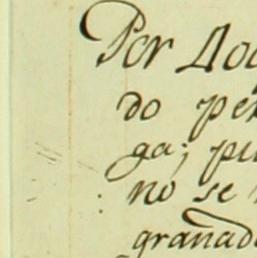 Por
do pe
ga; pu
no se
granad